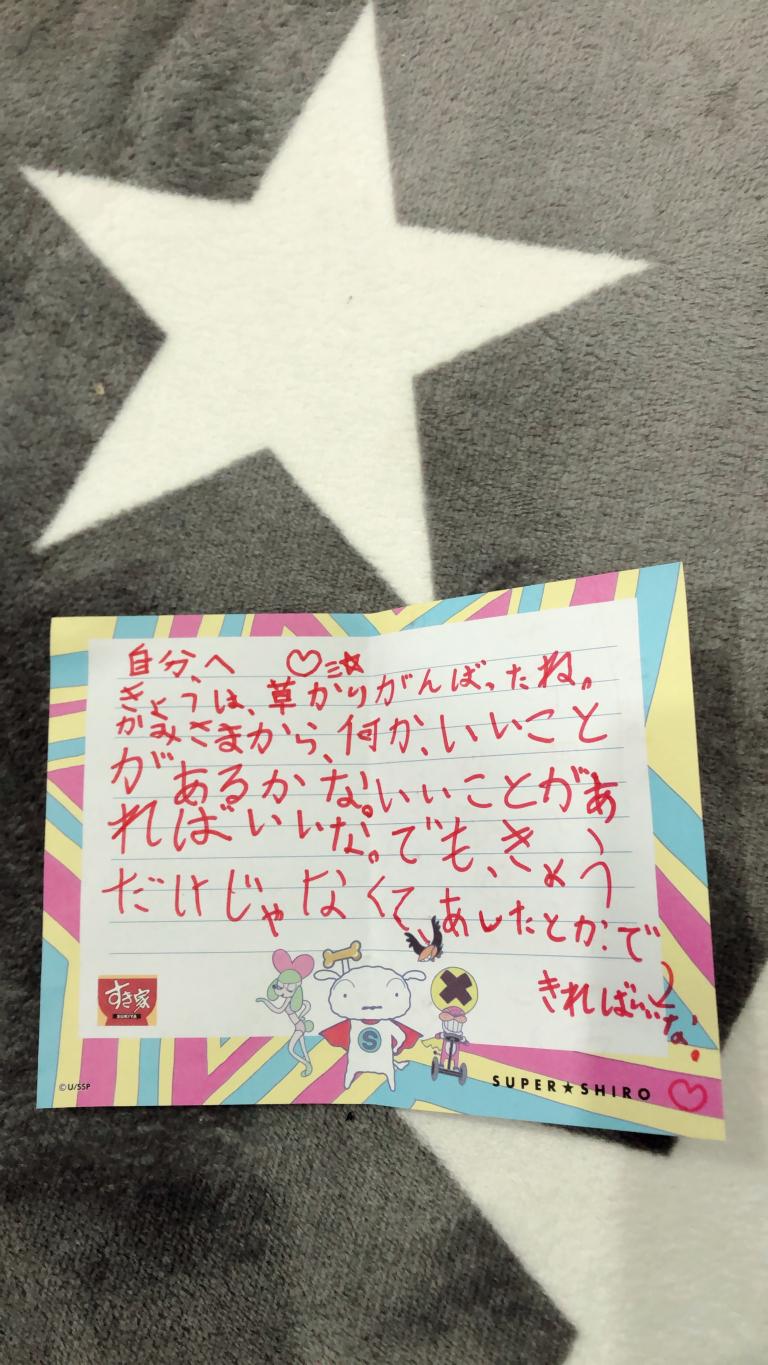 自分、へ
きょうは、草かりがんばったね。
かみさまから、何か、いいこと
があるかな。いいことがあ
ればいいな。でも、きょう
だけじゃなくて、あしたとか、で
きればいいな!
すき家
SUKIYA
S
©U/SSP
SUPER★SHIRO